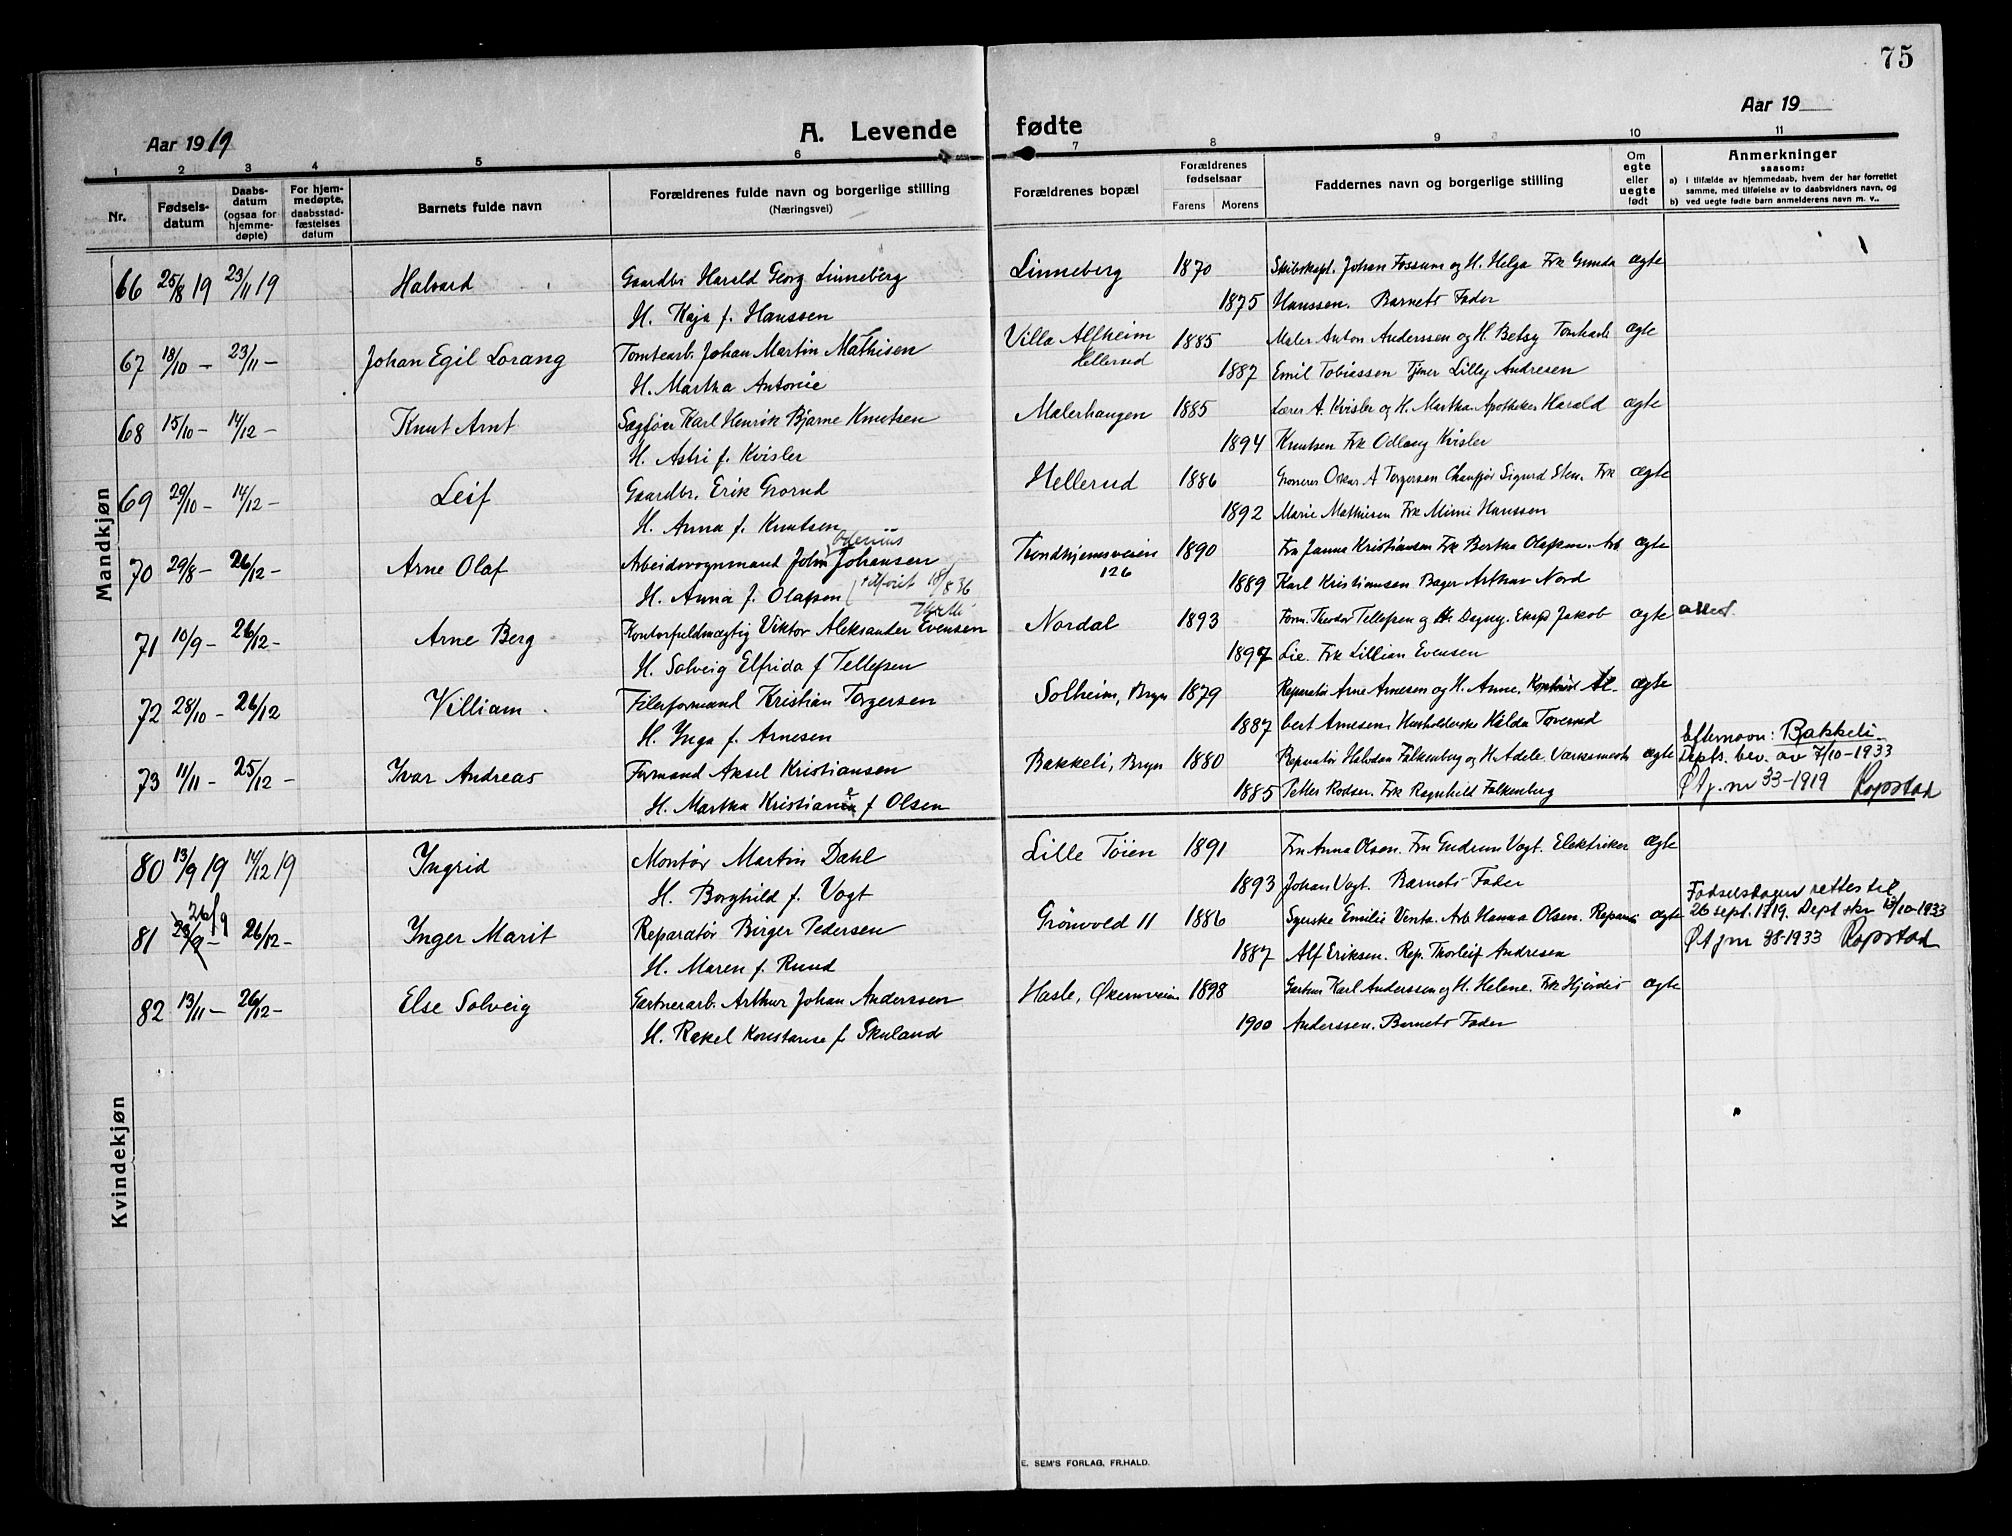 75
Aar 1919
A. Levende fødte
Aar 19
1 2 3 4 5 6 7 8 9 10 11
Nr.
Fødsels-
datum
Daabs-
datum
(ogsaa for
hjemme-
døpte)
For hjem-
medøpte,
daabsstad-
fæstelses
datum
Barnets fulde navn
Forældrenes fulde navn og borgerlige stilling
(Næringsvei)
Forældrenes bopæl
Forældrenes
fødselsaar
Farens Morens
Faddernes navn og borgerlige stilling
Om
egte
eller
uegte
født
Anmerkninger
saasom:
a) i tilfælde av hjemmedaab, hvem der har forrettet
samme, med tilføielse av to daabsvidners navn, og
b) ved uegte fødte barn anmelderens navn m. v..
Mandkjøn
66 25/8 19 23/11 19 Halvard Gaardbr Harald Georg Linneberg Linneberg 1870 Skibskapt. Johan Fossum og H. Helga Frk Gunda ægte
H. Kaja f. Hanssen 1875 Hanssen. Barnets Fader
67 18/10 – 23/11 – Johan Egil Lorang Tomtearb. Johan Martin Mathisen Villa Alfheim 1885 Maler Anton Anderssen og H. Betsy ægte
Hellerud
H. Martha Antonie 1887 Emil Tobiassen Tjener Lilly Andresen
68 15/10 – 14/12 – Knut Arnt Sagfører Karl Henrik Bjarne Knutsen Malerhaugen 1885 Lærer A. Kvisler og H. Martha. Apotheker Harald ægte
H. Astri f. Kvisler 1894 Knutsen Frk Odlaug Kvisler
69 29/10 – 14/12 – Leif Gaardbr. Erik Grorud Hellerud 1886 Grosserer Oskar A Torgersen Chauffør Sigurd Sten. Frk ægte
H. Anna f. Knutsen 1892 Marie Mathisen Frk Mimi Hanssen
Odenius
70 29/8 – 26/12 – Arne Olaf Arbeidsvognmand John Johansen Trondhjemsveien 1890 Fru Janna Kristiansen Frk Bertha Olafsen. Arb ægte
126
H. Anna f. Olafsen tilføiet 18/8 36 1889 Karl Kristiansen Bager Arthur Nord
71 10/9 – 26/12 – Arne Berg Kontorfuldmægtig Viktor Aleksander Evensen Nordal 1893 Form. Theodor Tellefsen og H. Dagny. Eksp Jakob ægte attest.
H. Solveig Elfrida f Tellefsen 1897 Lie. Frk Lillian Evensen
72 28/10 – 26/12 William Filerformand Kristian Torgersen Solheim, Bryn 1879 Reparatør Arne Arnesen og H. Anne. Kontorist Al- ægte
H. Inga f. Arnesen 1887 bert Arnesen. Husholderske Hilda Toverud
Efternavn: Bakkeli
73 11/11 – 25/12 – Ivar Andreas Formand Aksel Kristiansen Bakkeli, Bryn 1880 Reparatør Halvdan Falkenberg og H. Adele. Værksmestr ægte Depts. bev. av 7/10-1933
H. Martha Kristiane f Olsen 1885 Petter Rodser. Frk Ragnhild Falkenberg Ø A j. nr 33-1919 Ropstad
Kvindekjøn
80 13/9 19 14/12 19 Ingrid Montør Martin Dahl Lille Tøien 1891 Fru Anna Olsen. Fru Gudrun Vogt. Elektriker ægte
H. Borghild f. Vogt 1893 Johan Vogt. Barnets Fader
26/9 Fødselsdagen rettes til
81 23/9 – 26/12 – Inger Marit Reparatør Birger Pedersen Grønvold 11 1886 Syerske Emilie Venta. Arb Hanna Olsen. Reparatør ægte 26 sept. 1919. Dept skr 13/10-1933
H. Maren f. Ruud 1887 Alf Eriksen. Rep. Thorleif Andresen Ø A j nr 38-1933 Ropstad
82 13/11 – 26/12 – Else Solveig Gartnerarb. Arthur Johan Anderssen Hasle, Økernveien 1898 Gartner Karl Anderssen og H. Helene. Frk Hjørdis ægte
H. Rakel Konstanse f. Skuland 1900 Anderssen. Barnets Fader
E. SEM'S FORLAG, FR.HALD.